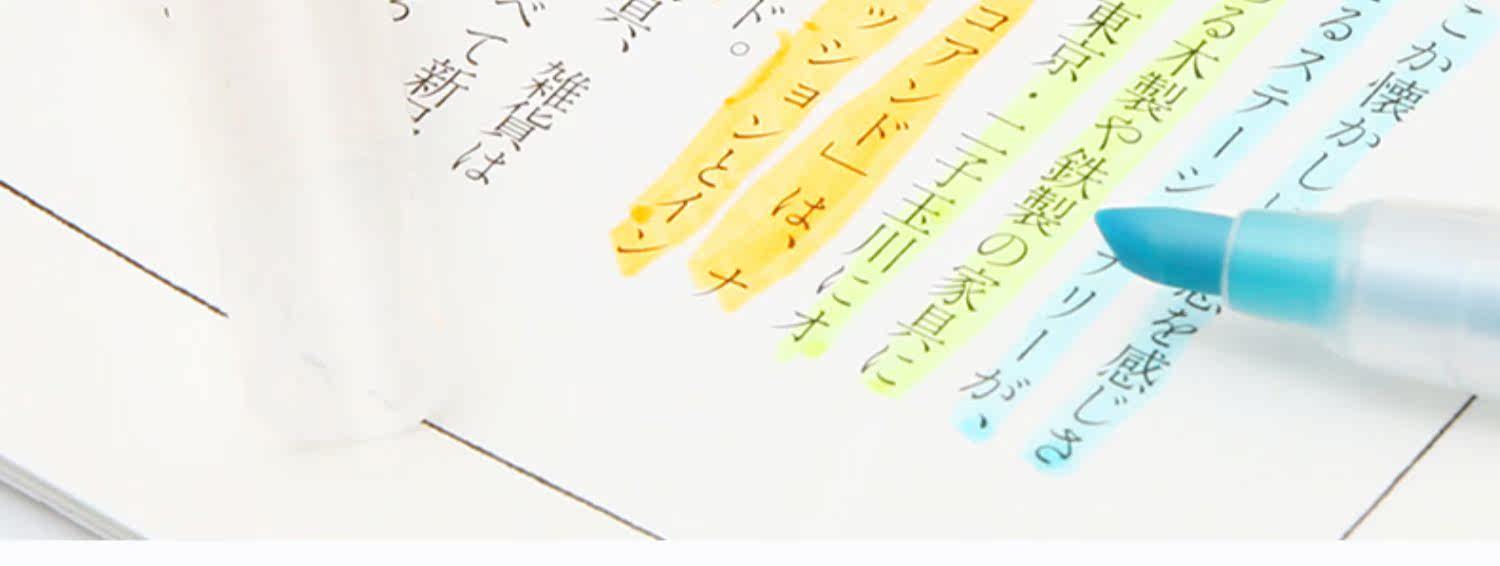 こか懐かし
を感じさ
るステーシ
リーが、
る木製や鉄製の家具に
東京・二子玉川にオ
コアンド」は、ナ
ッションとイン
ド。
具、
雑貨は
べて新